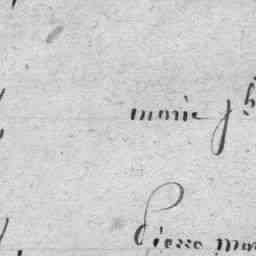 marie jh
pierre mar